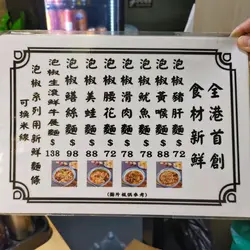 全港首創
食材新鮮
泡椒豬肝麵$72
泡椒黃喉麵$88
泡椒魷魚麵$78
泡椒滑肉麵$78
泡椒腰花麵$72
泡椒美蛙麵$88
泡椒鱔麵$98
泡椒生滾鮮牛展麵$138
泡椒系列用新鮮麵條
可換米線
(圖片僅供參考)